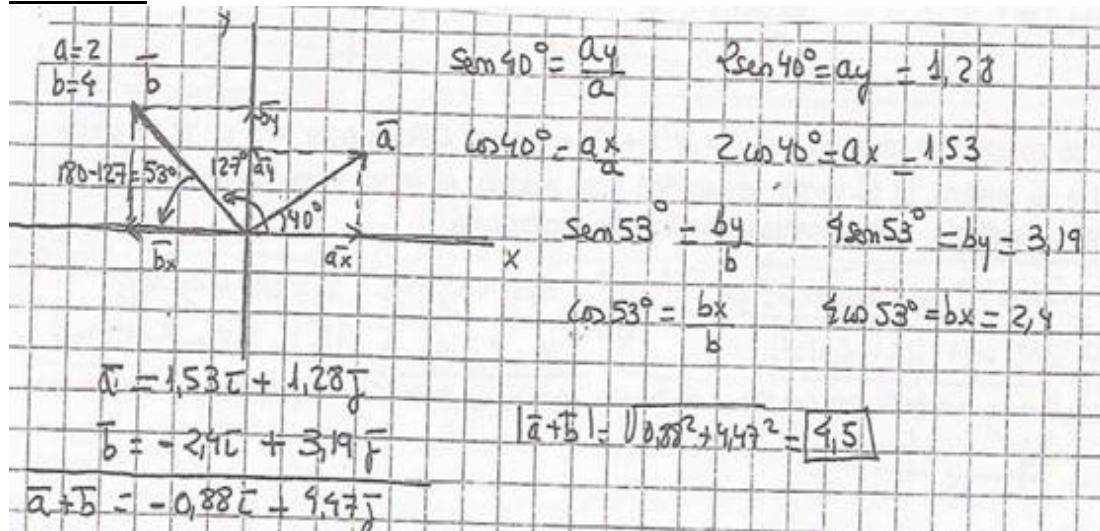 y
a=2
b=4
b̄
b̄y
ā
127°
āy
180-127=53°
40°
b̄x
āx
x
sen 40° = ay/a
2sen 40° = ay = 1,28
cos 40° = ax/a
2 cos 40° = ax = 1,53
sen 53° = by/b
4 sen 53° = by = 3,19
cos 53° = bx/b
4 cos 53° = bx = 2,4
ā = 1,53ī + 1,28j̄
b̄ = -2,4ī + 3,19j̄
ā+b̄ = -0,88ī + 4,47j̄
|ā+b̄| = √0,88²+4,47² = 4,5